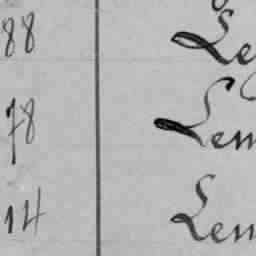 88 Le
78 Lem
14 Lem